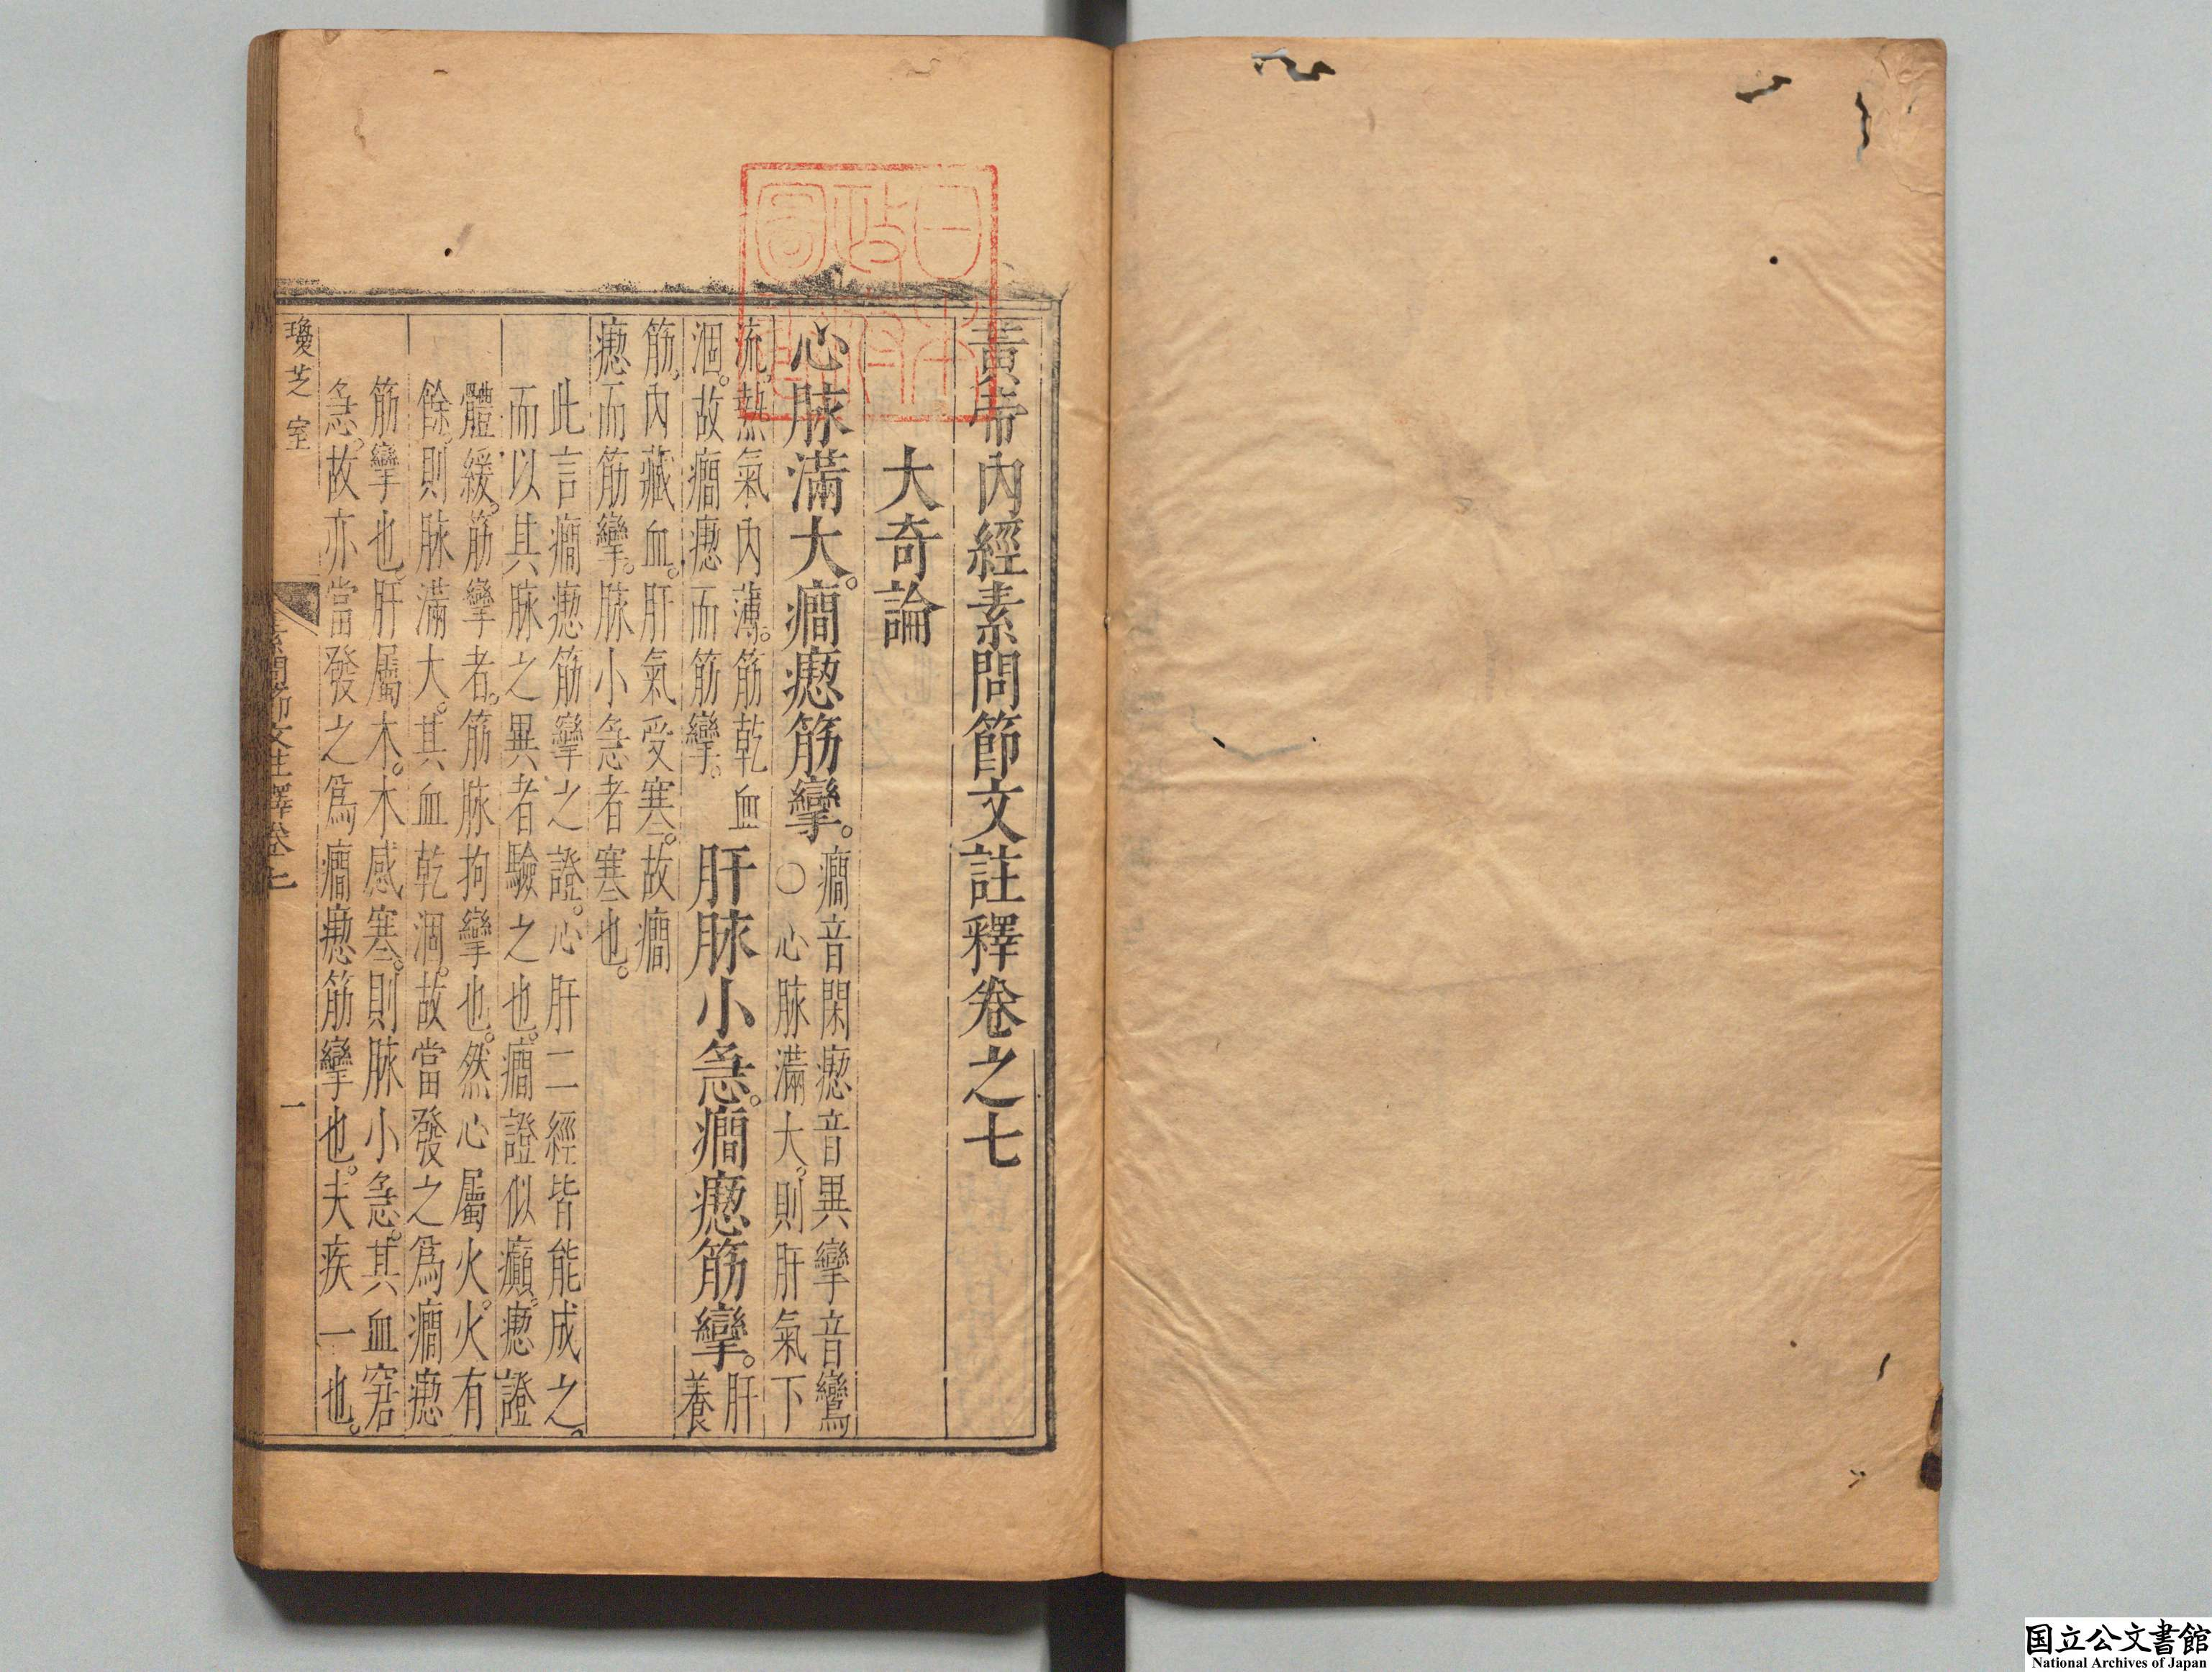 黃帝內經素問節文註釋卷之七
大奇論
心脉滿大。癇瘛筋攣。
癇音閑瘛音異攣音鸞
○心脉滿大。則肝氣下
流。熱氣內薄。筋乾血
涸。故癇瘛而筋攣。
肝脉小急。癇瘛筋攣。
肝
養
筋。內藏血。肝氣受寒。故癇
瘛而筋攣。脉小急者寒也。
此言癇瘛筋攣之證。心肝二經皆能成之。
而以其脉之異者驗之也。癇證似癲。瘛證
體緩。筋攣者。筋脉拘攣也。然心屬火。火有
餘。則脉滿大。其血乾涸。故當發之爲癇瘛
筋攣也。肝屬木。木感寒。則脉小急。其血窘
急。故亦當發之爲癇瘛筋攣也。夫疾一也。
瓊芝室
素問節文註釋卷七
一
日本政府圖書
国立公文書館
National Archives of Japan